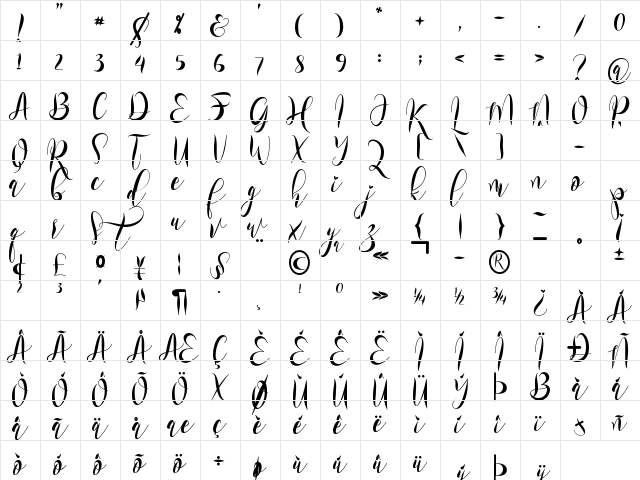 ! " # $ % & ' ( ) * + , - . / 0
1 2 3 4 5 6 7 8 9 : ; < = > ? @
A B C D E F G H I J K L M N O P
Q R S T U V W X Y Z [ \ ] -
a b c d e f g h i j k l m n o p
q r s t u v w x y z { | } ~ ¡
¢ £ ¤ ¥ ¦ § ¨ © « ¬ - ® ¯ ° ±
² ³ ´ µ ¶ · ¸ ¹ º » ¼ ½ ¾ ¿ À Á
Â Ã Ä Å Æ Ç È É Ê Ë Ì Í Î Ï Ð Ñ
Ò Ó Ô Õ Ö × Ø Ù Ú Û Ü Ý Þ ß à á
â ã ä å æ ç è é ê ë ì í î ï ð ñ
ò ó ô õ ö ÷ ø ù ú û ü ý þ ÿ